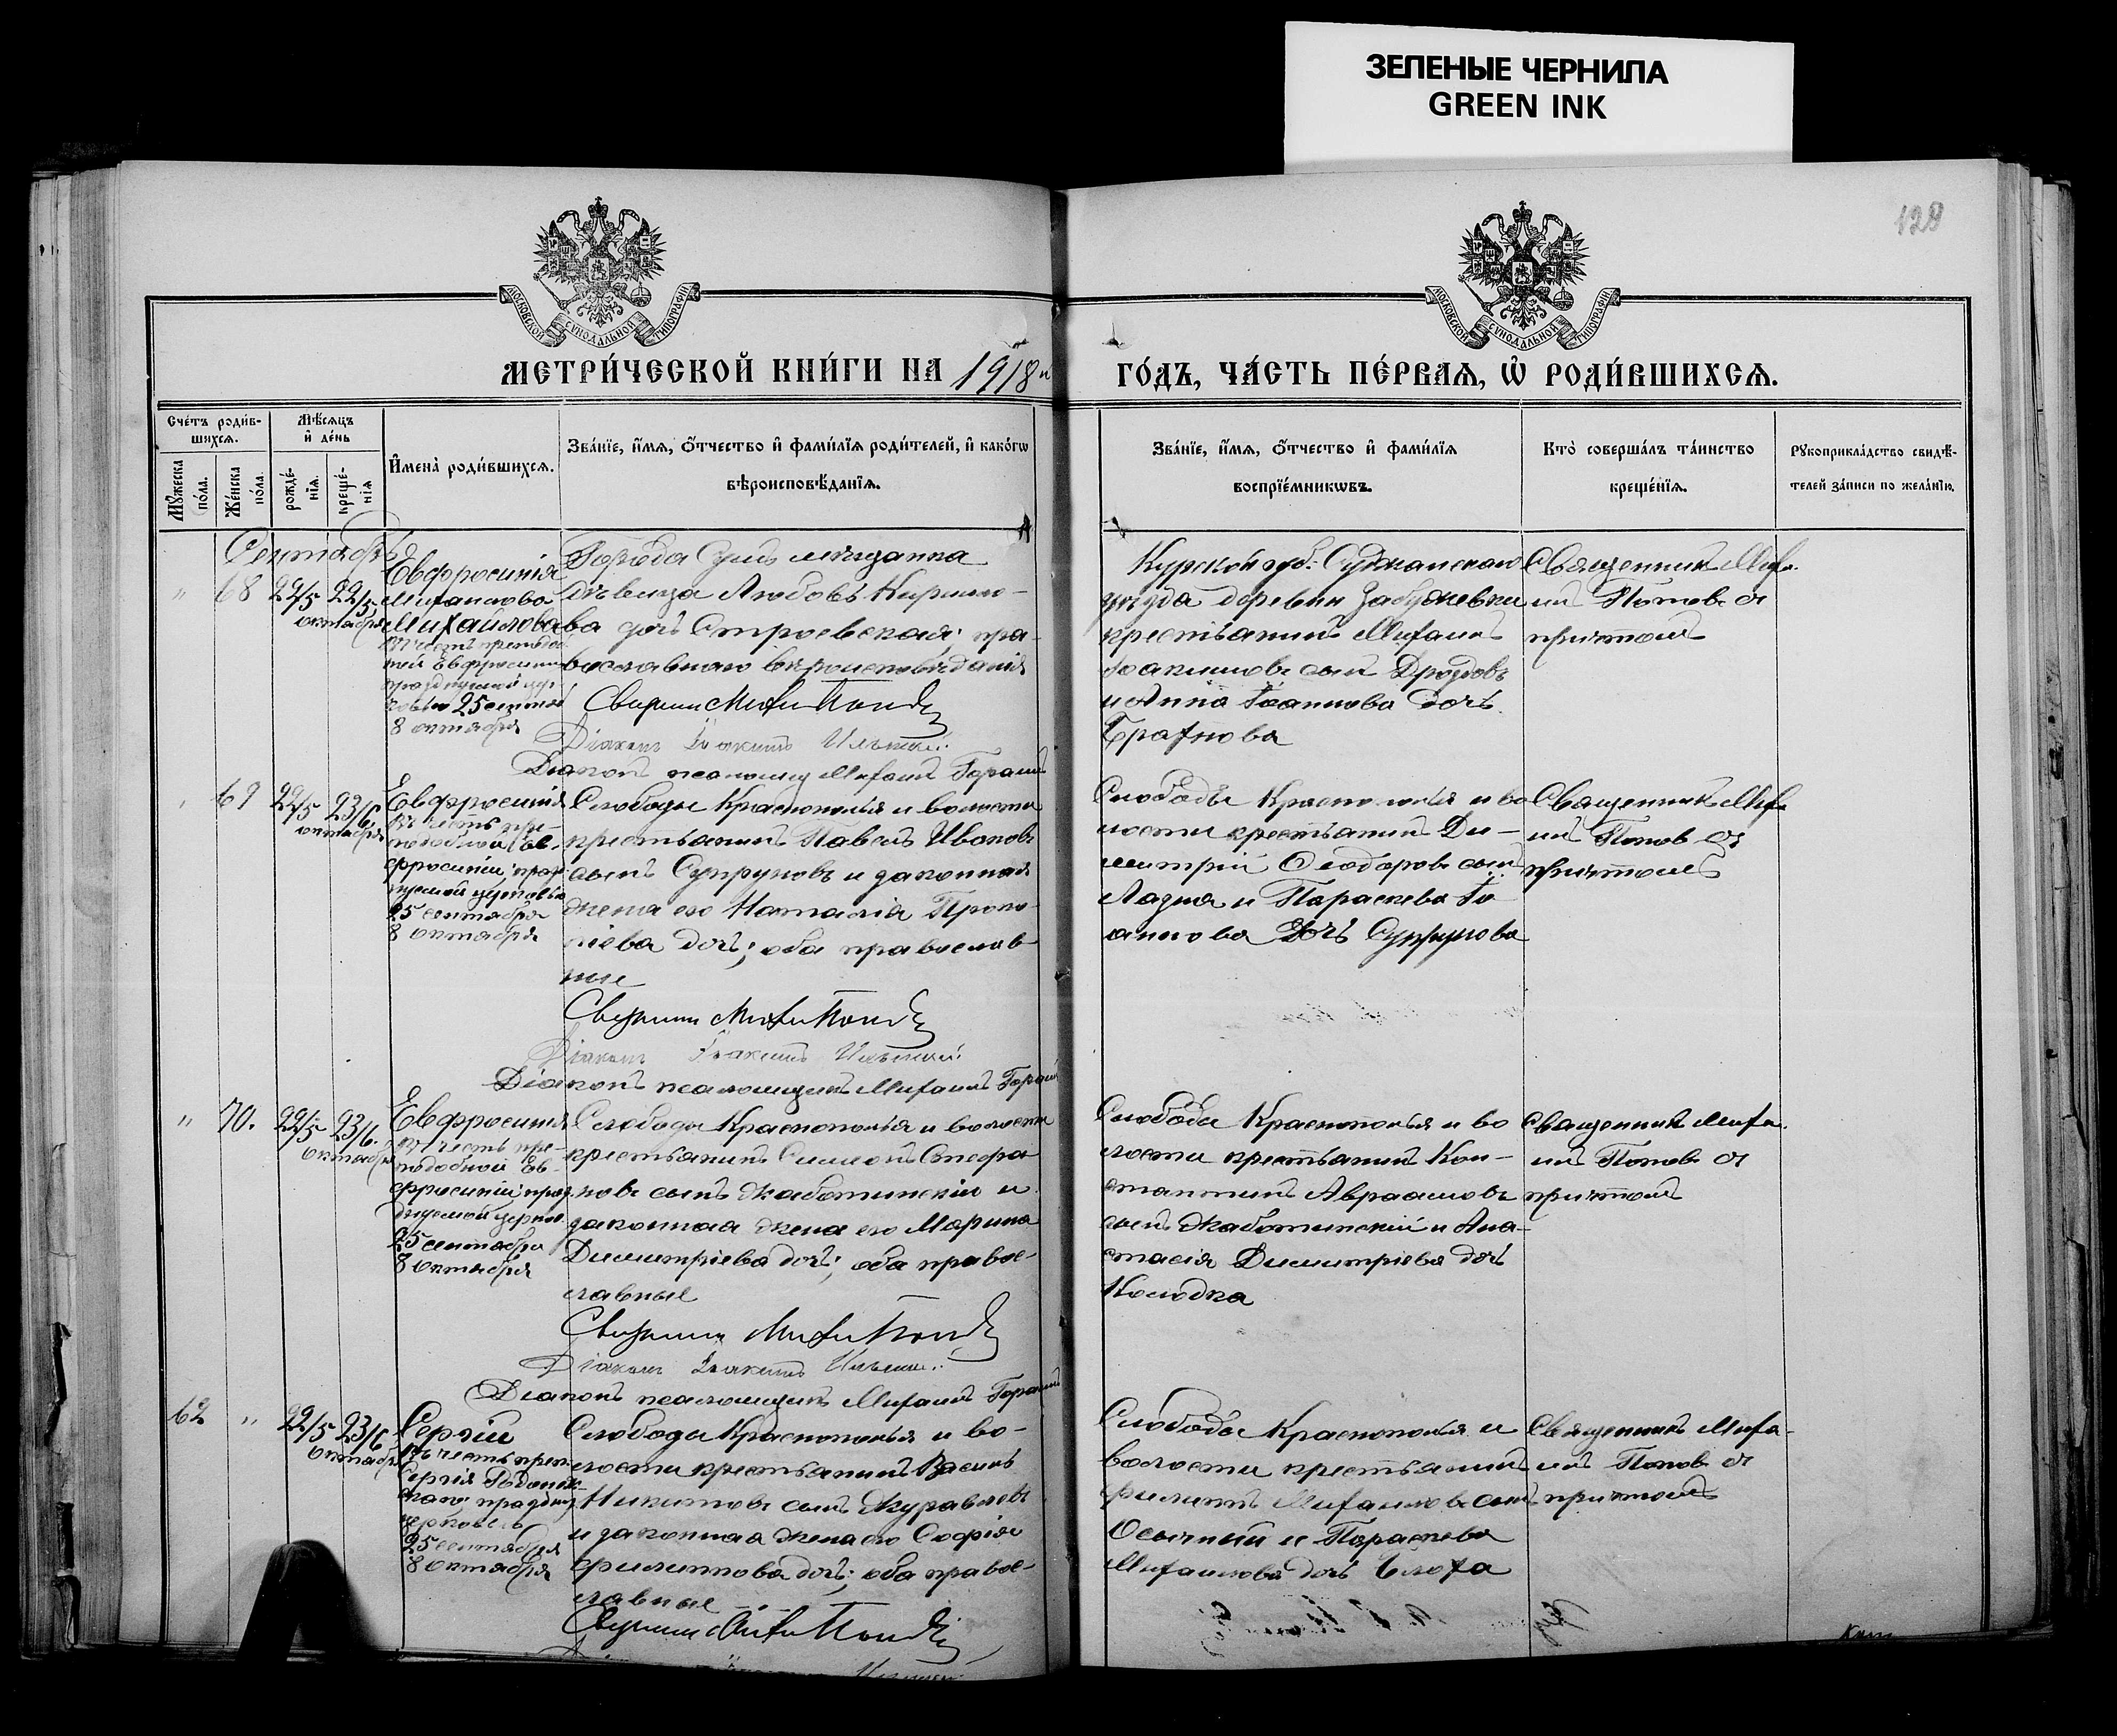 ЗЕЛЕНЫЕ ЧЕРНИЛА
GREEN INK
129
МОСКОВСКОЙ СѴНОДАЛЬНОЙ ТИПОГРАФІИ
МОСКОВСКОЙ СѴНОДАЛЬНОЙ ТИПОГРАФІИ
МЕТРИ́ЧЕСКОЙ КНИ́ГИ НА 1918й
ГО́ДЪ, ЧА́СТЬ ПЕ́РВАѦ, Ѡ҆ РОДИ́ВШИХСѦ.
Сче́тъ роди́в-
шихсѧ.
Мѣ́сѧцъ
и҆ де́нь
Мꙋ́жеска
по́ла.
Же́нска
по́ла.
рожде́-
нїѧ.
креще́-
нїѧ
И҆мена̀ роди́вшихсѧ.
Зва́нїе, и҆́мѧ, ѻ҆́тчество и҆ фами́лїѧ роди́телей, и҆ како́гѡ
вѣроисповѣ́данїѧ.
Зва́нїе, и҆́мѧ, ѻ҆́тчество и҆ фами́лїѧ
воспрїе́мникѡвъ.
Кто̀ соверша́лъ та́инство
креще́нїѧ.
Рꙋкоприкла́дство свидѣ́-
телей за́писи по жела́нїю.
Сентябрь
" 68 22/5 22/5
октября
Евфросинія
Михаилова
Михаилова
въ честь преподоб
ной Евфросиніи
празднуемой цер
ковью 25 сентяб
8 октября
Города Сумъ мѣщанка
дѣвица Любовь Кирилло-
ва дочь Строевская; пра-
вославнаго вѣроисповѣданія
Священ Миха Попов
Діаконъ Іоакимъ
Діаконъ псаломщ Михаилъ
Курской губ. Суджанскаго
уѣзда деревни
крестьянинъ Михаилъ
Іоакимовъ сынъ Дроздовъ
и Анна Іоаннова дочь
Священникъ Миха-
илъ Поповъ съ
причтомъ
69 22/5 23/6
октября
Евфросинія
въ честь пре-
подобной Ев-
фросиніи, праз
нуемой церковью
25 сентября
8 октября
Слободы Краснополья и волости
крестьянинъ Павелъ Ивановъ
сынъ Супруновъ и законная
жена его Наталія Проко-
піева дочь; оба православ-
ные
Священ Миха Попов
Діаконъ Іоакимъ
Діаконъ псаломщикъ Михаилъ
Слободы Краснополья и во
лости крестьянинъ Ди-
митрій Ѳеодоровъ сынъ
Ладня и Параскева Іо-
аннова дочь Супрунова
Священникъ Миха
илъ Поповъ съ
причтомъ
" 70. 22/5 23/6.
октября
Евфросинія
въ честь пре-
подобной Ев-
фросиніи, праз
днуемой церков.
25 сентября
8 октября
Слободы Краснополья и волости
крестьянинъ Симеонъ Стефа-
новъ сынъ Жаботинскій и
законная жена его Марина
Димитріева дочь; оба правос-
лавные
Священ Миха Попов
Діаконъ Іоакимъ
Діаконъ псаломщикъ Михаилъ
Слободы Краснополья и во
лости крестьянинъ Кон-
стантинъ Авраамовъ
сынъ Жаботинскій и Ана-
стасія Димитріева дочь
Колодка
Священникъ Миха-
илъ Поповъ съ
причтомъ
62 " 22/5 23/6
октября
Сергій
въ честь преп.
Сергія Радонеж-
скаго праздну
церковью
25 сентября
8 октября
Слободы Краснополья и во-
лости крестьянинъ Василь
Никитовъ сынъ Журавлевъ
и законная жена его Софія
Филиппова дочь; оба правос-
лавные
Священ Миха Попов
Слободы Краснополья и
волости крестьянинъ
Филиппъ Михаиловъ сынъ
Осычный и Параскева
Михаилова дочь Блоха
Священникъ Миха-
илъ Поповъ съ
причтомъ